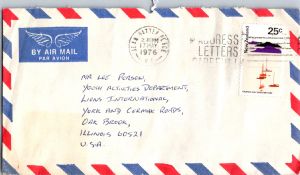 BY AIR MAIL
PAR AVION
1976
ADDRESS
LETTERS
25c
MR LEE PERSON,
YOUTH ACTIVITIES DEPARTMENT,
LIONS INTERNATIONAL,
YORK AND CERMAK ROADS,
OAK BROOK,
ILLINOIS 60521
U.S.A.